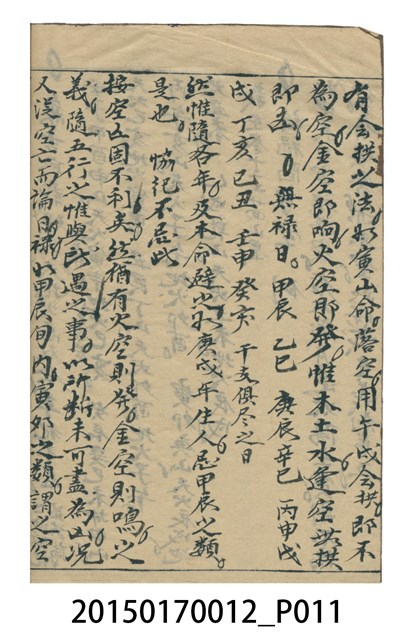 有会拱之法如寅山命落空用午戌会拱即不
為空金空即响火空即發惟木土水逢空莫拱
即凶 無祿日 甲辰 乙巳 庚辰辛巳 丙申戊
戌 丁亥己丑 壬申 癸亥 干支俱尽之日
然惟隨各年及本命避忌如庚戌年生人忌甲辰之類
是也 協紀不忌此
按空亡固不利矣然猶有火空則發金空則鳴之
義隨五行之惟與所遇之事以所斷未可盡為凶况
又從空亡而論日祿如甲辰旬內寅卯之類謂之空
20150170012_P011